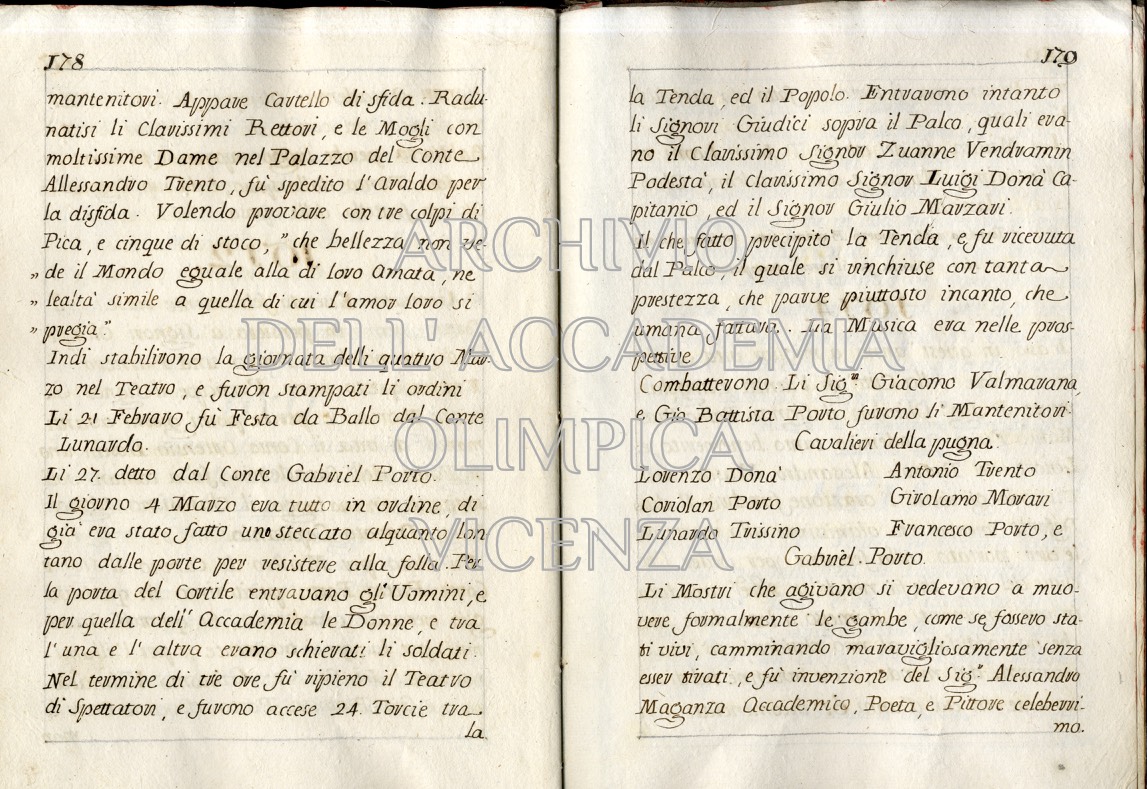 178
mantenitori. Appare Cartello di sfida. Radu-
natisi li Clarissimi Rettori, e le Mogli con
moltissime Dame nel Palazzo del Conte
Allessandro Trento, fù spedito l'Araldo per
la disfida. Volendo provare con tre colpi di
Pica, e cinque di stoco, " che bellezza non ve-
" de il Mondo eguale alla di loro Amata, ne
" lealtà simile a quella di cui l'amor loro si
" pregia."
Indi stabilirono la giornata delli quattro Mar-
zo nel Teatro, e furon stampati li ordini
Li 21 Febraro fù Festa da Ballo dal Conte
Lunardo.
Li 27. detto dal Conte Gabriel Porto.
Il giorno 4 Marzo era tutto in ordine, di
già era stato fatto uno steccato alquanto lon
tano dalle porte per resistere alla folla. Per
la porta del Cortile entravano gl'Uomini, e
per quella dell'Accademia le Donne, e tra
l'una e l'altra erano schierati li soldati.
Nel termine di tre ore fù ripieno il Teatro
di Spettatori, e furono accese 24. Torcie tra
la
179
la Tenda, ed il Popolo. Entrarono intanto
li Signori Giudici sopra il Palco, quali era-
no il Clarissimo Signor Zuanne Vendramin
Podestà, il Clarissimo Signor Luigi Donà Ca-
pitanio, ed il Signor Giulio Marzari.
Il che fatto precipitò la Tenda, e fu ricevuta
dal Palco, il quale si rinchiuse con tanta
prestezza, che parve piuttosto incanto, che
umana fattura. La Musica era nelle pros-
pettive
Combatterono Li Sig.ri Giacomo Valmarana,
e Gio Battista Porto, furono li Mantenitori
Cavalieri della pugna.
Lorenzo Donà Antonio Trento
Coriolan Porto Girolamo Morari
Lunardo Trissino Francesco Porto, e
Gabriel Porto.
Li Mostri che agivano si vedevano a muo-
vere formalmente le gambe, come se fossero sta-
ti vivi, camminando maravigliosamente senza
esser tirati, e fù invenzione del Sig.r Alessandro
Maganza Accademico, Poeta, e Pittore celeberri-
mo.
ARCHIVIO
DELL'ACCADEMIA
OLIMPICA
VICENZA